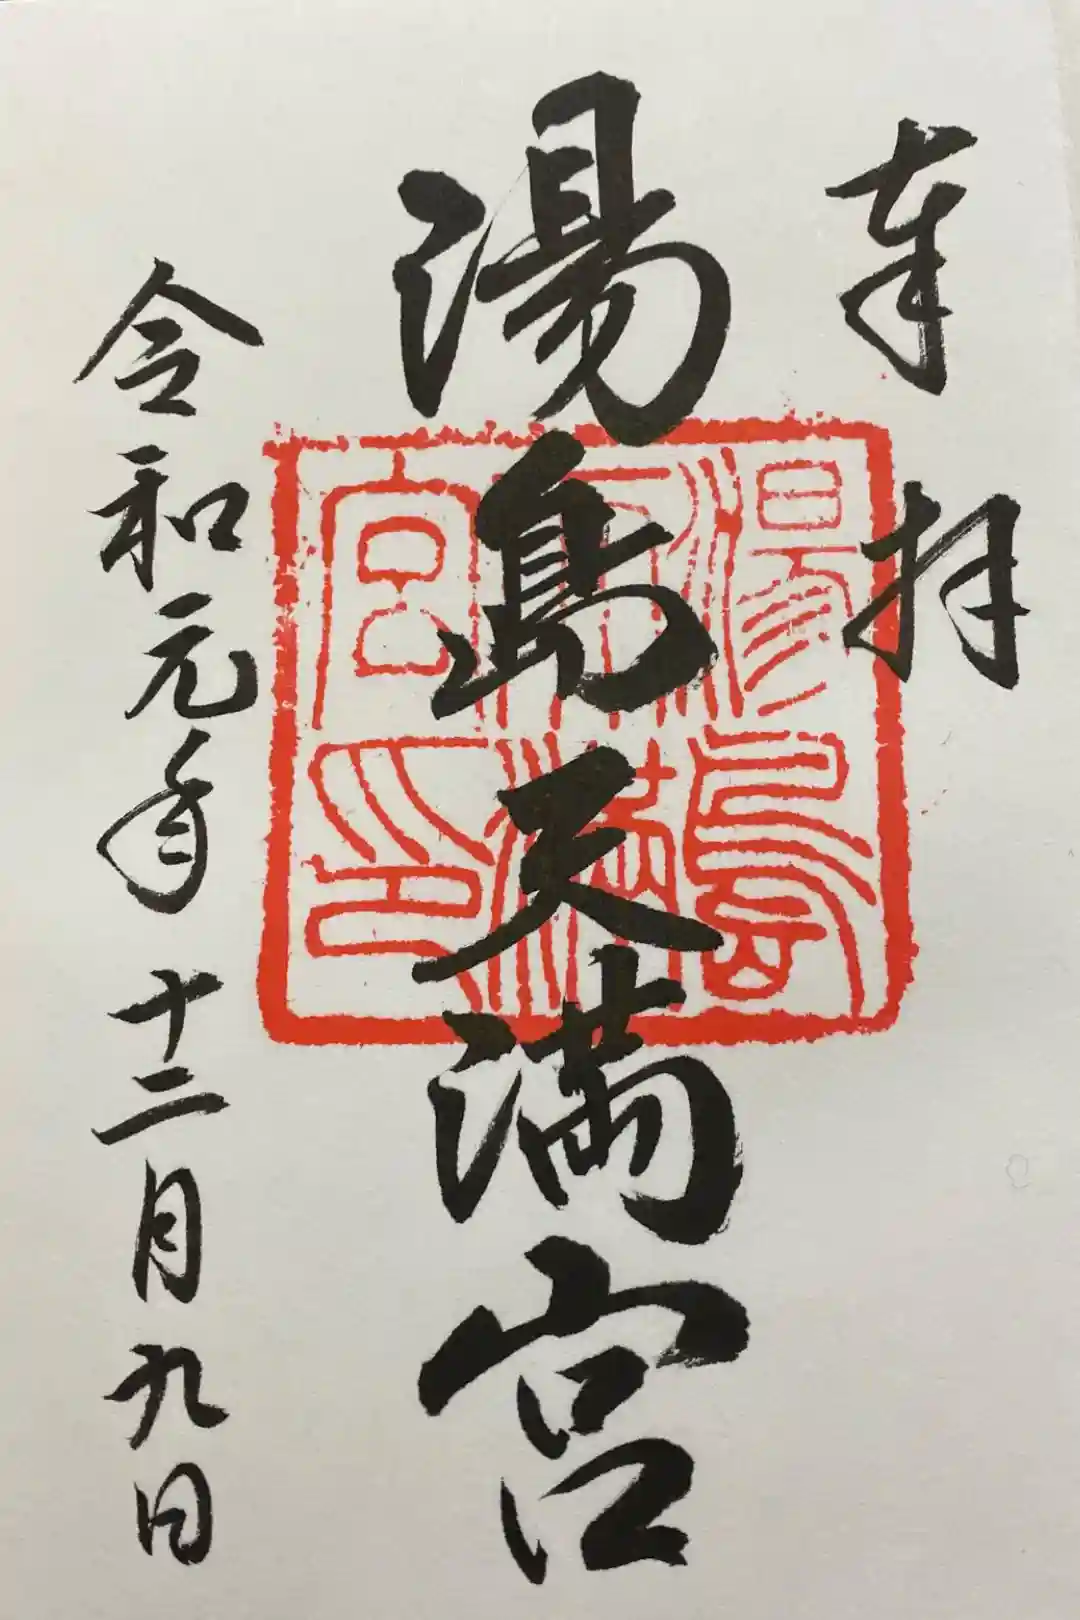 奉拝
湯島天満宮
令和元年十二月九日
湯島
天満
宮印